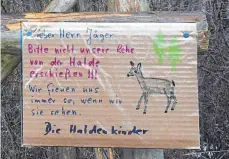 Lieber Herr Jäger
Bitte nicht unsere Rehe
von der Halde
erschießen !!!
Wir freuen uns
immer so, wenn wir
sie sehen.
Die Halden kinder